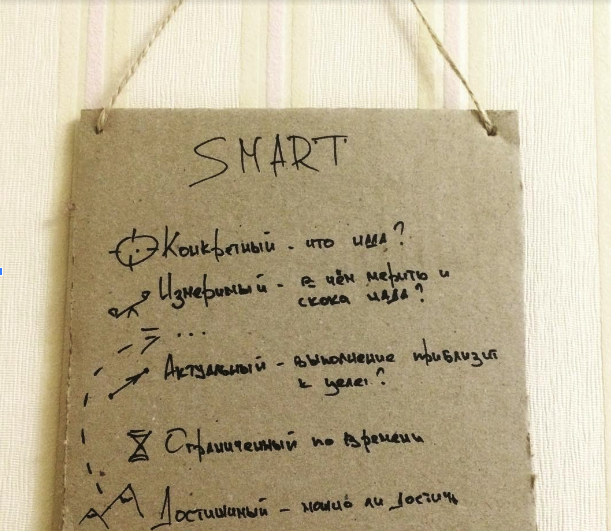 SMART
Конкретный - что нада?
Измеримый - в чём мерить и
скока нада?
...
Актуальный - выполнение приблизит
к целе?
Ограниченный по времени
Достижимый - можно ли достичь